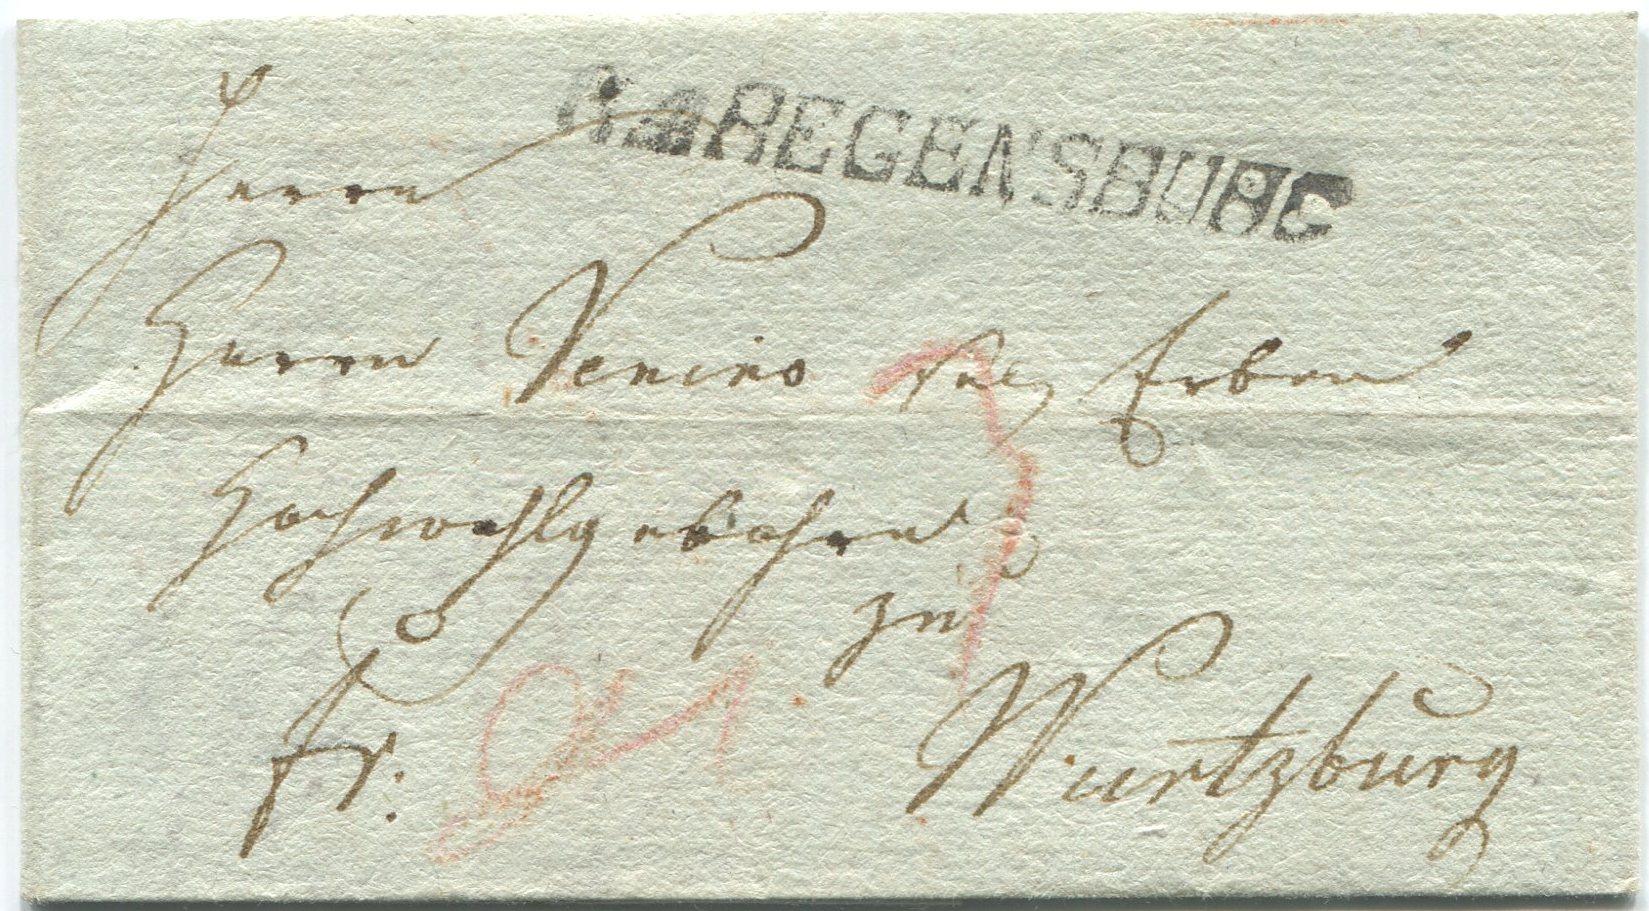 R.4.REGENSBURG
Herrn
Herrn Venino seel Erben
Hochwohlgebohrn
zu
Fr. Wurtzburg